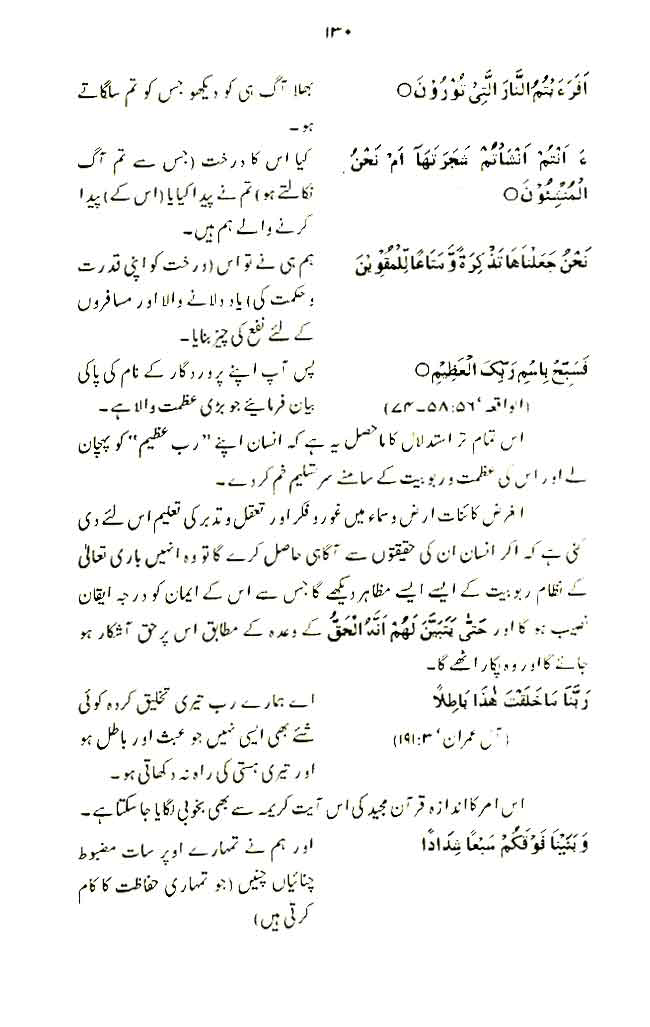 ۱۳۰
اَفَرَءَیْتُمُ النَّارَ الَّتِیْ تُوْرُوْنَ○
بھلا آگ ہی کو دیکھو جس کو تم سلگاتے
ہو۔
ءَ اَنْتُمْ اَنْشَاْتُمْ شَجَرَتَھَآ اَمْ نَحْنُ
الْمُنْشِئُوْنَ○
کیا اس کا درخت (جس سے تم آگ
نکالتے ہو) تم نے پیدا کیا یا (اس کے) پیدا
کرنے والے ہم ہیں۔
نَحْنُ جَعَلْنَاھَا تَذْکِرَةً وَّ مَتَاعًا لِّلْمُقْوِیْنَ
ہم ہی نے تو اس (درخت کو اپنی قدرت
و حکمت کی) یاد دلانے والا اور مسافروں
کے لئے نفع کی چیز بنایا۔
فَسَبِّحْ بِاسْمِ رَبِّکَ الْعَظِیْمِ○
(الواقعہ ‘ ۵۶:۵۸۔۷۴)
پس آپ اپنے پروردگار کے نام کی پاکی
بیان فرمائیے جو بڑی عظمت والا ہے۔
اس تمام تر استدلال کا ماحصل یہ ہے کہ انسان اپنے ’’رب عظیم‘‘ کو پہچان
لے اور اس کی عظمت و ربوبیت کے سامنے سر تسلیم خم کر دے۔
الغرض کائنات ارض و سماء میں غور و فکر اور تعقل و تدبر کی تعلیم اس لئے دی
گئی ہے کہ اگر انسان ان کی حقیقتوں سے آگاہی حاصل کرے گا تو وہ انہیں باری تعالیٰ
کے نظام ربوبیت کے ایسے ایسے مظاہر دیکھے گا جس سے اس کے ایمان کو درجہ ایقان
نصیب ہو گا اور حَتّٰی یَتَبَیَّنَ لَھُمْ اَنَّہُ الْحَقُّ کے وعدہ کے مطابق اس پر حق آشکار ہو
جائے گا اور وہ پکار اٹھے گا۔
رَبَّنَا مَا خَلَقْتَ ھٰذَا بَاطِلاً
(آل عمران ‘ ۱۹۱:۳)
اے ہمارے رب تیری تخلیق کردہ کوئی
شئے بھی ایسی نہیں جو عبث اور باطل ہو
اور تیری ہستی کی راہ نہ دکھاتی ہو۔
اس امر کا اندازہ قرآن مجید کی اس آیت کریمہ سے بھی بخوبی لگایا جا سکتا ہے۔
وَ بَنَیْنَا فَوْقَکُمْ سَبْعًا شِدَادًا
اور ہم نے تمہارے اوپر سات مضبوط
چنائیاں چنیں (جو تمہاری حفاظت کا کام
کرتی ہیں)